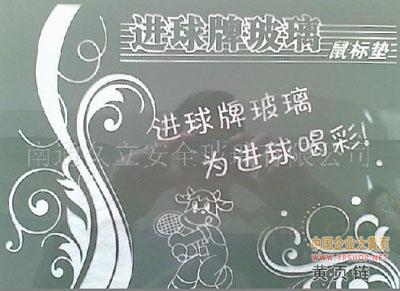 进球牌玻璃
鼠标垫
进球牌玻璃
为进球喝彩!
中国企业大黄页
WWW.YPSHOP.NET
黄页链